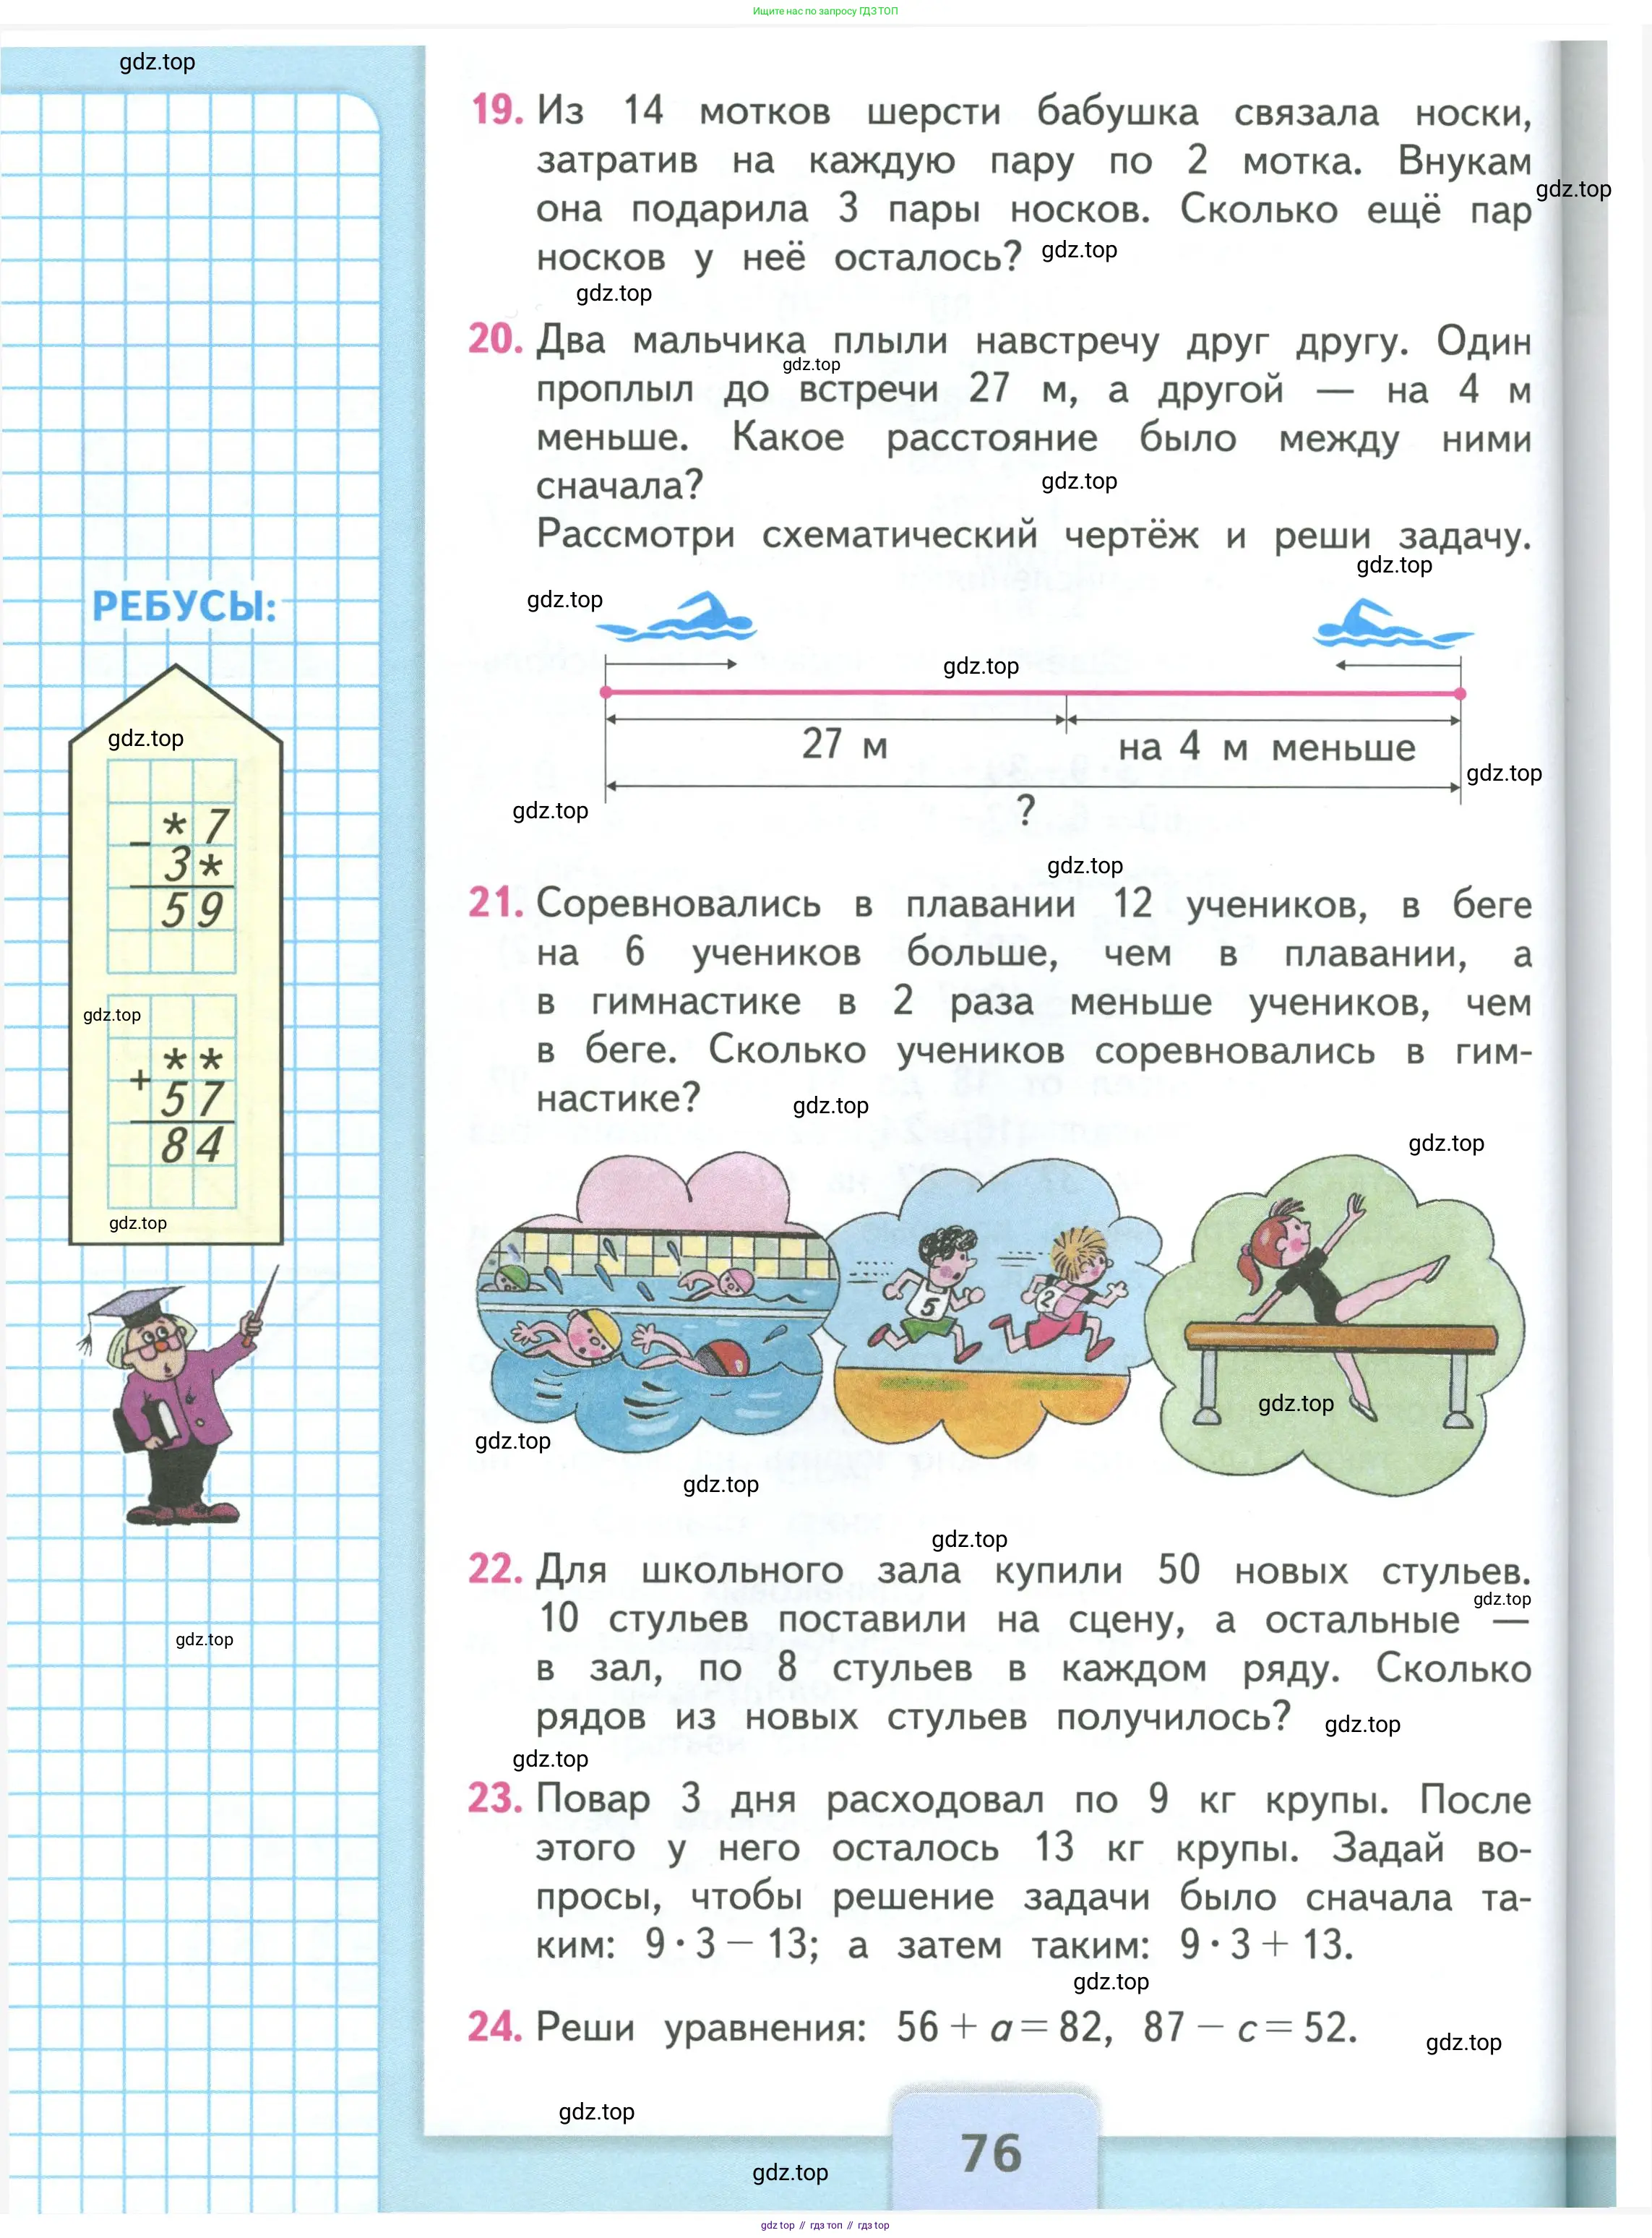 Ищите нас по запросу ГДЗ ТОП
gdz.top
19. Из 14 мотков шерсти бабушка связала носки,
затратив на каждую пару по 2 мотка. Внукам
gdz.top
она подарила 3 пары носков. Сколько ещё пар
носков у неё осталось?
gdz.top
gdz.top
20. Два мальчика плыли навстречу друг другу. Один
gdz.top
проплыл до встречи 27 м, а другой — на 4 м
меньше. Какое расстояние было между ними
сначала?
gdz.top
Рассмотри схематический чертёж и реши задачу.
gdz.top
gdz.top
gdz.top
27 м
на 4 м меньше
gdz.top
gdz.top
?
gdz.top
21. Соревновались в плавании 12 учеников, в беге
на 6 учеников больше, чем в плавании, а
в гимнастике в 2 раза меньше учеников, чем
в беге. Сколько учеников соревновались в гим-
настике?
gdz.top
gdz.top
5
2
gdz.top
gdz.top
gdz.top
gdz.top
22. Для школьного зала купили 50 новых стульев.
gdz.top
10 стульев поставили на сцену, а остальные —
в зал, по 8 стульев в каждом ряду. Сколько
рядов из новых стульев получилось?
gdz.top
gdz.top
23. Повар 3 дня расходовал по 9 кг крупы. После
этого у него осталось 13 кг крупы. Задай во-
просы, чтобы решение задачи было сначала та-
ким: 9 · 3 − 13; а затем таким: 9 · 3 + 13.
gdz.top
24. Реши уравнения: 56 + a = 82, 87 − c = 52.
gdz.top
gdz.top
РЕБУСЫ:
gdz.top
* 7
−
3 *
5 9
gdz.top
* *
+
5 7
8 4
gdz.top
gdz.top
76
gdz.top
gdz.top // гдз топ // гдз top